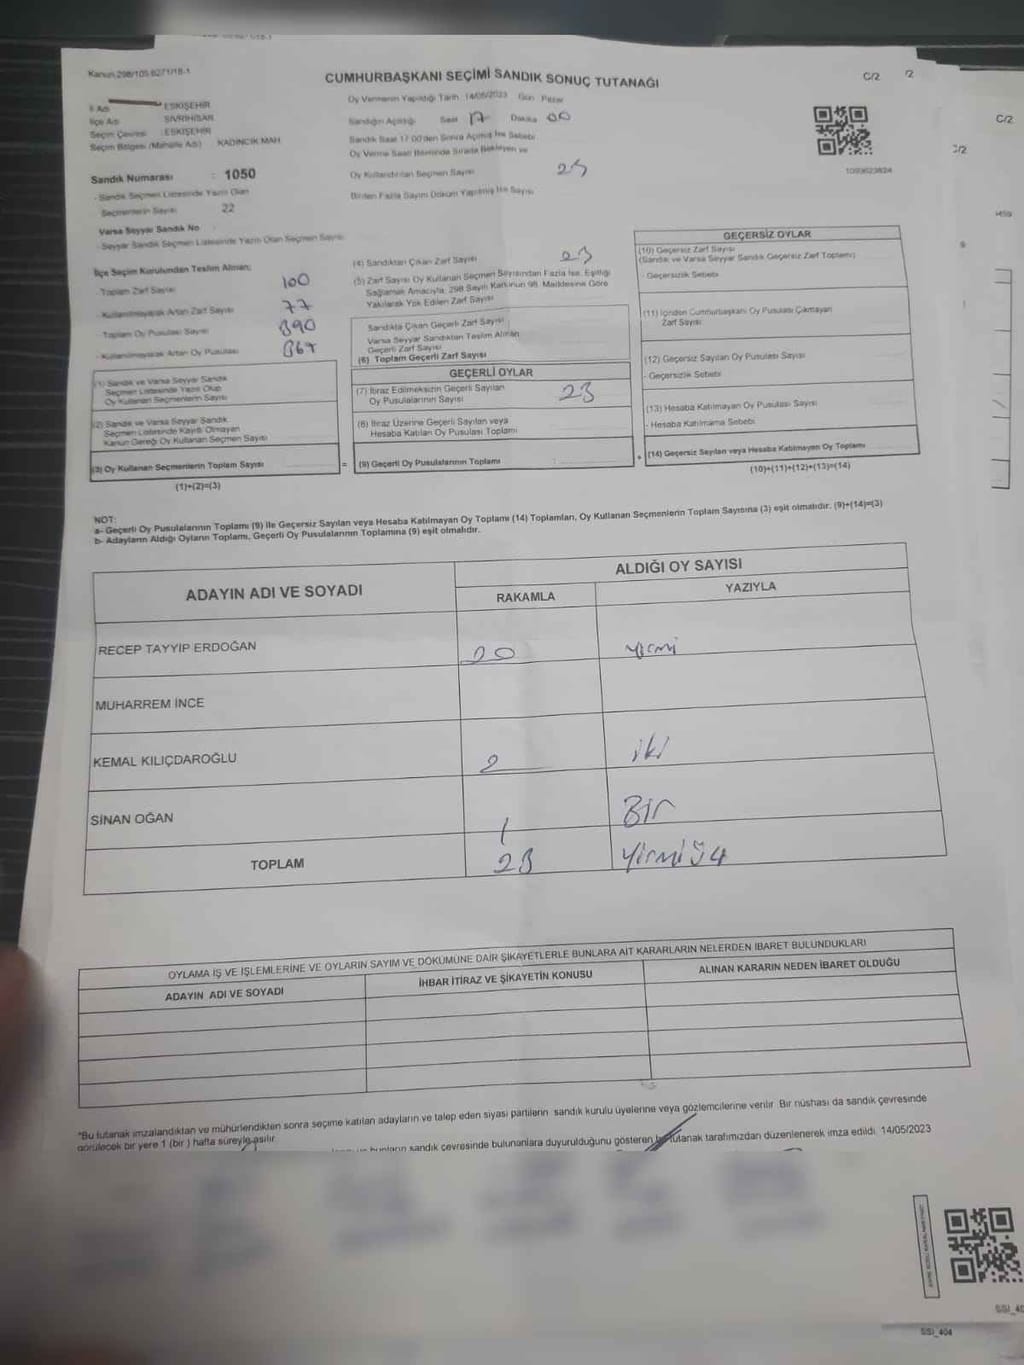 Kanun 298/105 6271/18-1
CUMHURBAŞKANI SEÇİMİ SANDIK SONUÇ TUTANAĞI
C/2
/2
C/2
İl Adı ESKİŞEHİR
İlçe Adı SİVRİHİSAR
Seçim Çevresi ESKİŞEHİR
Seçim Bölgesi (Mahalle Adı) KADINCIK MAH
Oy Vermenin Yapıldığı Tarih 14/05/2023 Gün Pazar
Sandığın Açıldığı Saat 17 Dakika 00
Sandık Saat 17:00'den Sonra Açılmış İse Sebebi
Oy Verme Saati Bitiminde Sırada Bekleyen ve
Oy Kullandırılan Seçmen Sayısı 23
Birden Fazla Sayım Döküm Yapılmış İse Sayısı
Sandık Numarası : 1050
- Sandık Seçmen Listesinde Yazılı Olan
Seçmenlerin Sayısı 22
Varsa Seyyar Sandık No
- Seyyar Sandık Seçmen Listesinde Yazılı Olan Seçmen Sayısı
İlçe Seçim Kurulundan Teslim Alınan;
- Toplam Zarf Sayısı 100
- Kullanılmayarak Artan Zarf Sayısı 77
Toplam Oy Pusulası Sayısı 390
- Kullanılmayarak Artan Oy Pusulası 367
(1) Sandık ve Varsa Seyyar Sandık
Seçmen Listesinde Yazılı Olup
Oy Kullanan Seçmenlerin Sayısı
(2) Sandık ve Varsa Seyyar Sandık
Seçmen Listesinde Kayıtlı Olmayan
Kanun Gereği Oy Kullanan Seçmen Sayısı
(3) Oy Kullanan Seçmenlerin Toplam Sayısı
(1)+(2)=(3)
(4) Sandıktan Çıkan Zarf Sayısı 23
(5) Zarf Sayısı Oy Kullanan Seçmen Sayısından Fazla İse, Eşitliği
Sağlamak Amacıyla, 298 Sayılı Kanunun 98. Maddesine Göre
Yakılarak Yok Edilen Zarf Sayısı
Sandıkta Çıkan Geçerli Zarf Sayısı
Varsa Seyyar Sandıktan Teslim Alınan
Geçerli Zarf Sayısı
(6) Toplam Geçerli Zarf Sayısı
GEÇERLİ OYLAR
(7) İtiraz Edilmeksizin Geçerli Sayılan
Oy Pusulalarının Sayısı 23
(8) İtiraz Üzerine Geçerli Sayılan veya
Hesaba Katılan Oy Pusulası Toplamı
= (9) Geçerli Oy Pusulalarının Toplamı
GEÇERSİZ OYLAR
(10) Geçersiz Zarf Sayısı
(Sandık ve Varsa Seyyar Sandık Geçersiz Zarf Toplamı)
- Geçersizlik Sebebi
(11) İçinden Cumhurbaşkanı Oy Pusulası Çıkmayan
Zarf Sayısı
(12) Geçersiz Sayılan Oy Pusulası Sayısı
- Geçersizlik Sebebi
(13) Hesaba Katılmayan Oy Pusulası Sayısı
- Hesaba Katılmama Sebebi
+ (14) Geçersiz Sayılan veya Hesaba Katılmayan Oy Toplamı
(10)+(11)+(12)+(13)=(14)
NOT:
a- Geçerli Oy Pusulalarının Toplamı (9) İle Geçersiz Sayılan veya Hesaba Katılmayan Oy Toplamı (14) Toplamları, Oy Kullanan Seçmenlerin Toplam Sayısına (3) eşit olmalıdır. (9)+(14)=(3)
b- Adayların Aldığı Oyların Toplamı, Geçerli Oy Pusulalarının Toplamına (9) eşit olmalıdır.
ADAYIN ADI VE SOYADI
ALDIĞI OY SAYISI
RAKAMLA
YAZIYLA
RECEP TAYYIP ERDOĞAN 20 yirmi
MUHARREM İNCE
KEMAL KILIÇDAROĞLU 2 iki
SİNAN OĞAN 1 Bir
TOPLAM 23
OYLAMA İŞ VE İŞLEMLERİNE VE OYLARIN SAYIM VE DÖKÜMÜNE DAİR ŞİKAYETLERLE BUNLARA AİT KARARLARIN NELERDEN İBARET BULUNDUKLARI
ADAYIN ADI VE SOYADI
İHBAR İTİRAZ VE ŞİKAYETİN KONUSU
ALINAN KARARIN NEDEN İBARET OLDUĞU
*Bu tutanak imzalandıktan ve mühürlendikten sonra seçime katılan adayların ve talep eden siyasi partilerin sandık kurulu üyelerine veya gözlemcilerine verilir. Bir nüshası da sandık çevresinde
görülecek bir yere 1 (bir ) hafta süreyle asılır.
bunların sandık çevresinde bulunanlara duyurulduğunu gösteren tutanak tarafımızdan düzenlenerek imza edildi. 14/05/2023
SSI_404